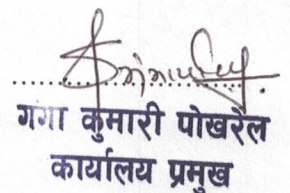 गंगा कुमारी पोखरेल
कार्यालय प्रमुख